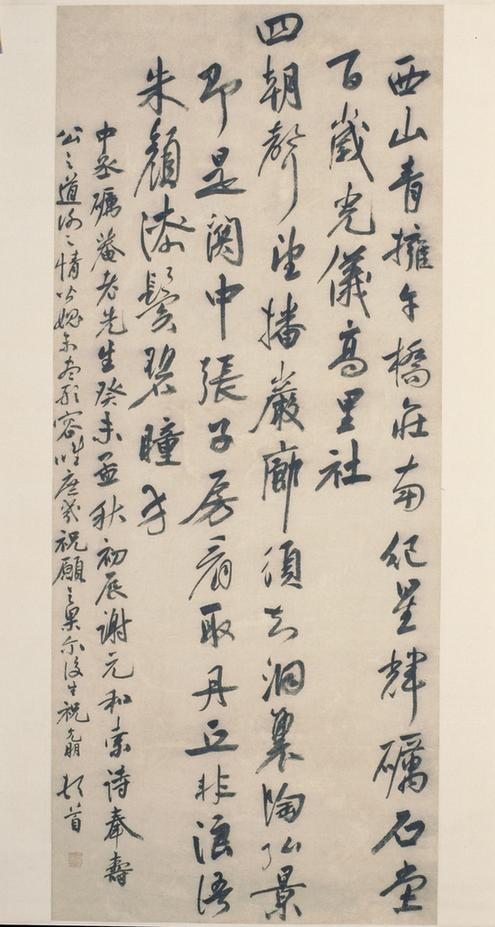 西山青擁午橋莊南紀星輝礪石堂
百歲光儀高里社
四朝聲望播巖廊須知洞裏陶弘景
即是關中張子房看取丹丘非浪語
朱顏漆鬢碧瞳方
中丞礪菴老先生癸未孟秋初辰謝元和索詩奉壽
公之道之情皆愧未盡形容唯庶幾祝願之果尔後生祝允明頓首